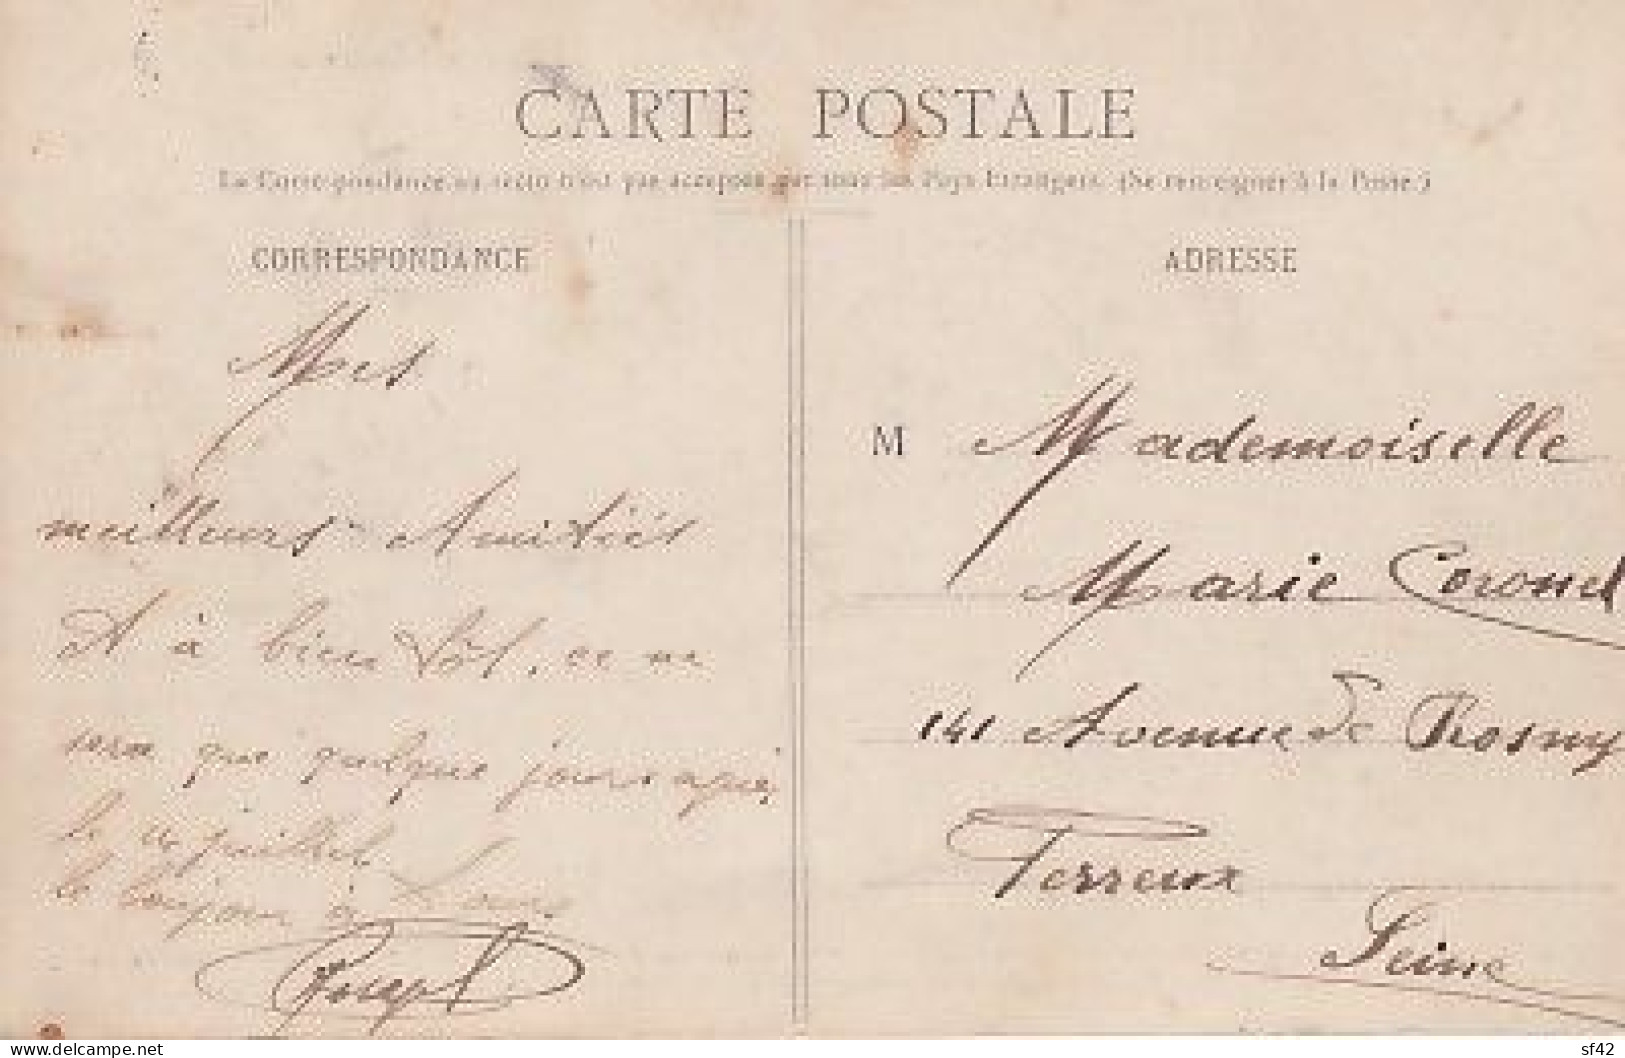 CARTE POSTALE
La Correspondance au recto n'est pas acceptée par tous les Pays Etrangers. (Se renseigner à la Poste.)
CORRESPONDANCE
Mes
meilleurs Amitiés
A à bien tôt, ce ne
sera que quelque jours après,
le juillet
le bonjour à Louis
Joseph
ADRESSE
M Mademoiselle
Marie Coronel
141 Avenue de Rosny
Perreux
Seine
delcampe.net
sf42